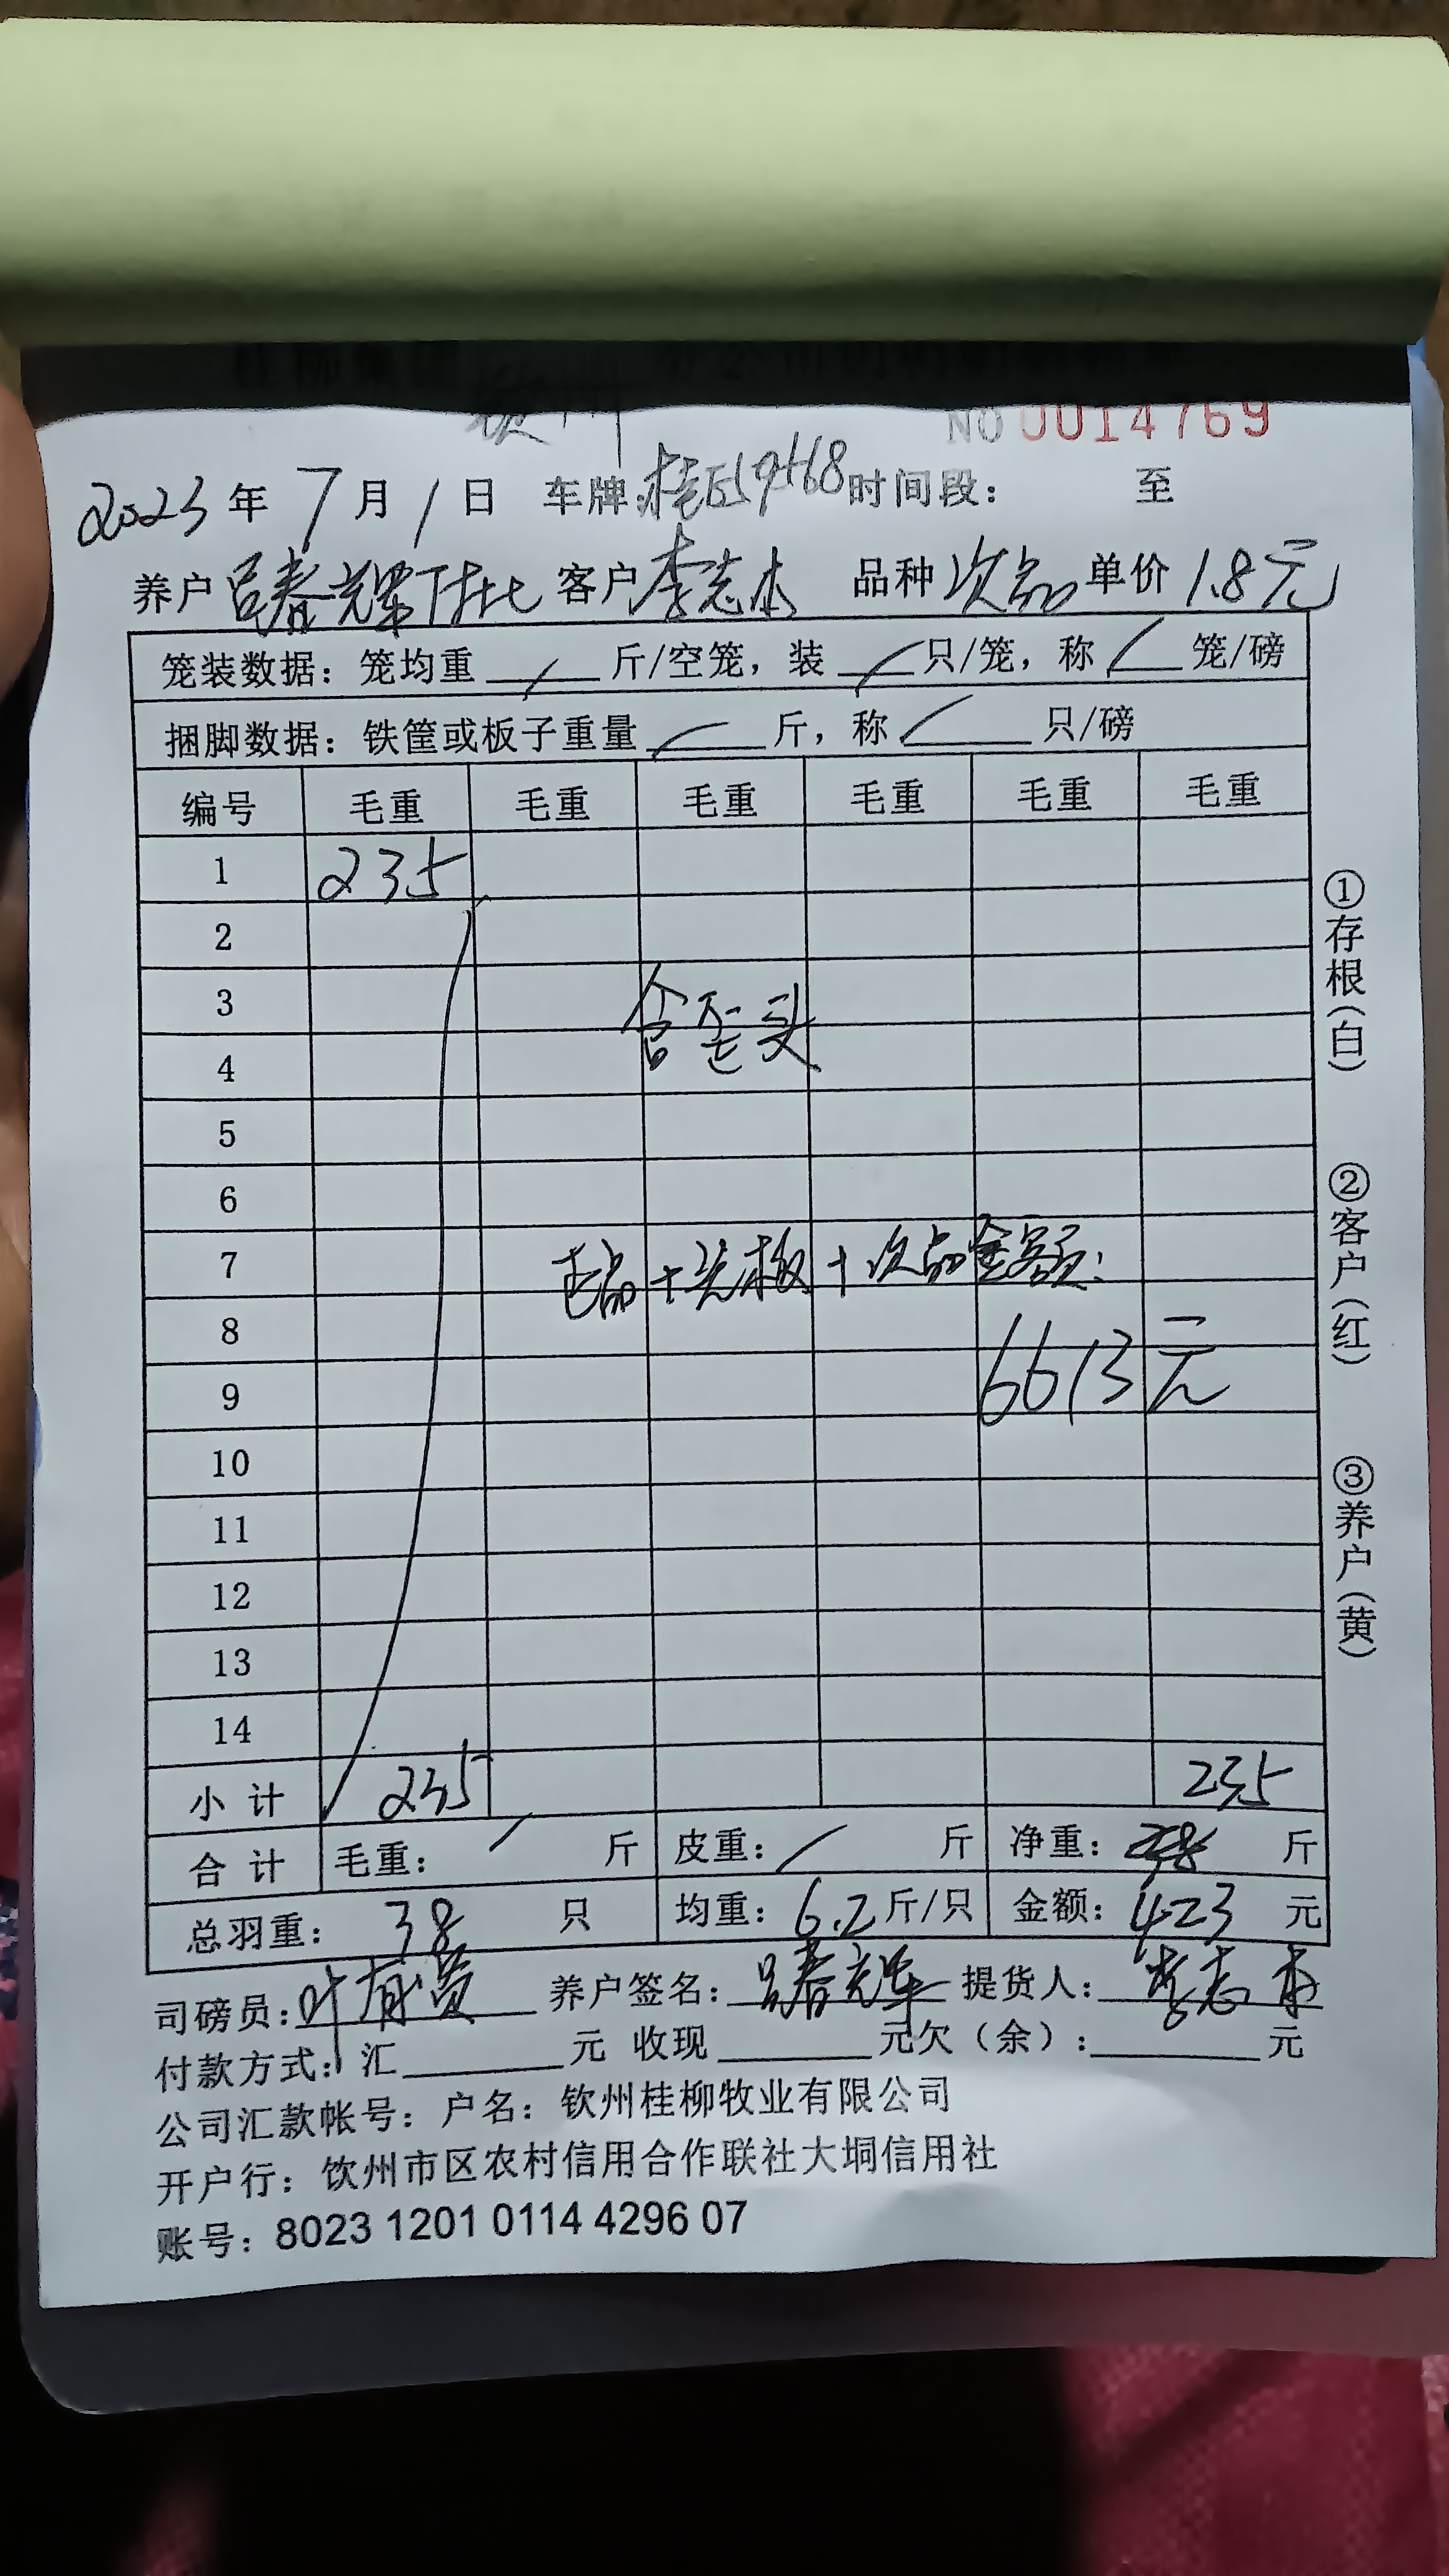 钦州
NO 0014769
2023年7月1日 车牌: 时间段: 至
养户 吕春辉 客户 李志本 品种 次品 单价 1.8元
笼装数据: 笼均重 / 斤/空笼, 装 / 只/笼, 称 / 笼/磅
捆脚数据: 铁筐或板子重量 / 斤, 称 / 只/磅
编号 毛重 毛重 毛重 毛重 毛重 毛重
1 235
2
3
含歪头
4
5
6
7
毛品+光板+次品金额:
8
9 6613元
10
11
12
13
14
小计 235 235
合计 毛重: / 斤 皮重: / 斤 净重: 斤
总羽重: 38 只 均重: 6.2 斤/只 金额: 423 元
司磅员: 叶有 养户签名: 吕春辉 提货人: 李志本
付款方式: 汇 元 收现 元欠（余）: 元
公司汇款帐号: 户名: 钦州桂柳牧业有限公司
开户行: 钦州市区农村信用合作联社大垌信用社
账号: 8023 1201 0114 4296 07
①存根（白）
②客户（红）
③养户（黄）